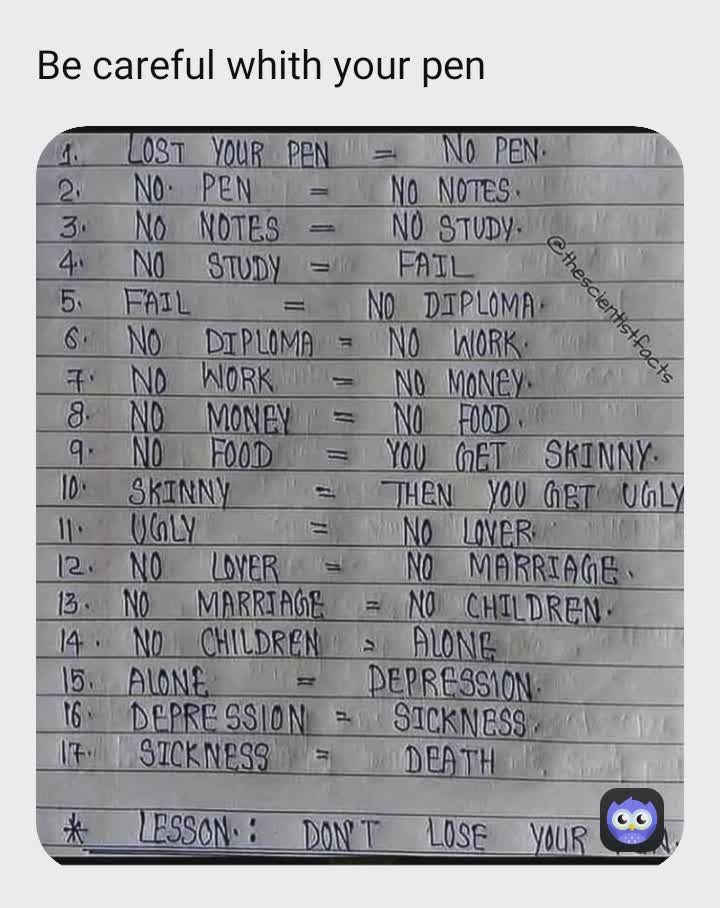 Be careful whith your pen
1. LOST YOUR PEN = NO PEN.
2. NO. PEN = NO NOTES.
3. NO NOTES = NO STUDY.
4. NO STUDY = FAIL
5. FAIL = NO DIPLOMA.
6. NO DIPLOMA = NO WORK.
7. NO WORK = NO MONEY.
8. NO MONEY = NO FOOD.
9. NO FOOD = YOU GET SKINNY.
10. SKINNY = THEN YOU GET UGLY
11. UGLY = NO LOVER.
12. NO LOVER = NO MARRIAGE.
13. NO MARRIAGE = NO CHILDREN.
14. NO CHILDREN = ALONE
15. ALONE = DEPRESSION.
16. DEPRESSION = SICKNESS.
17. SICKNESS = DEATH
* LESSON.: DON'T LOSE YOUR
@thescientistfacts